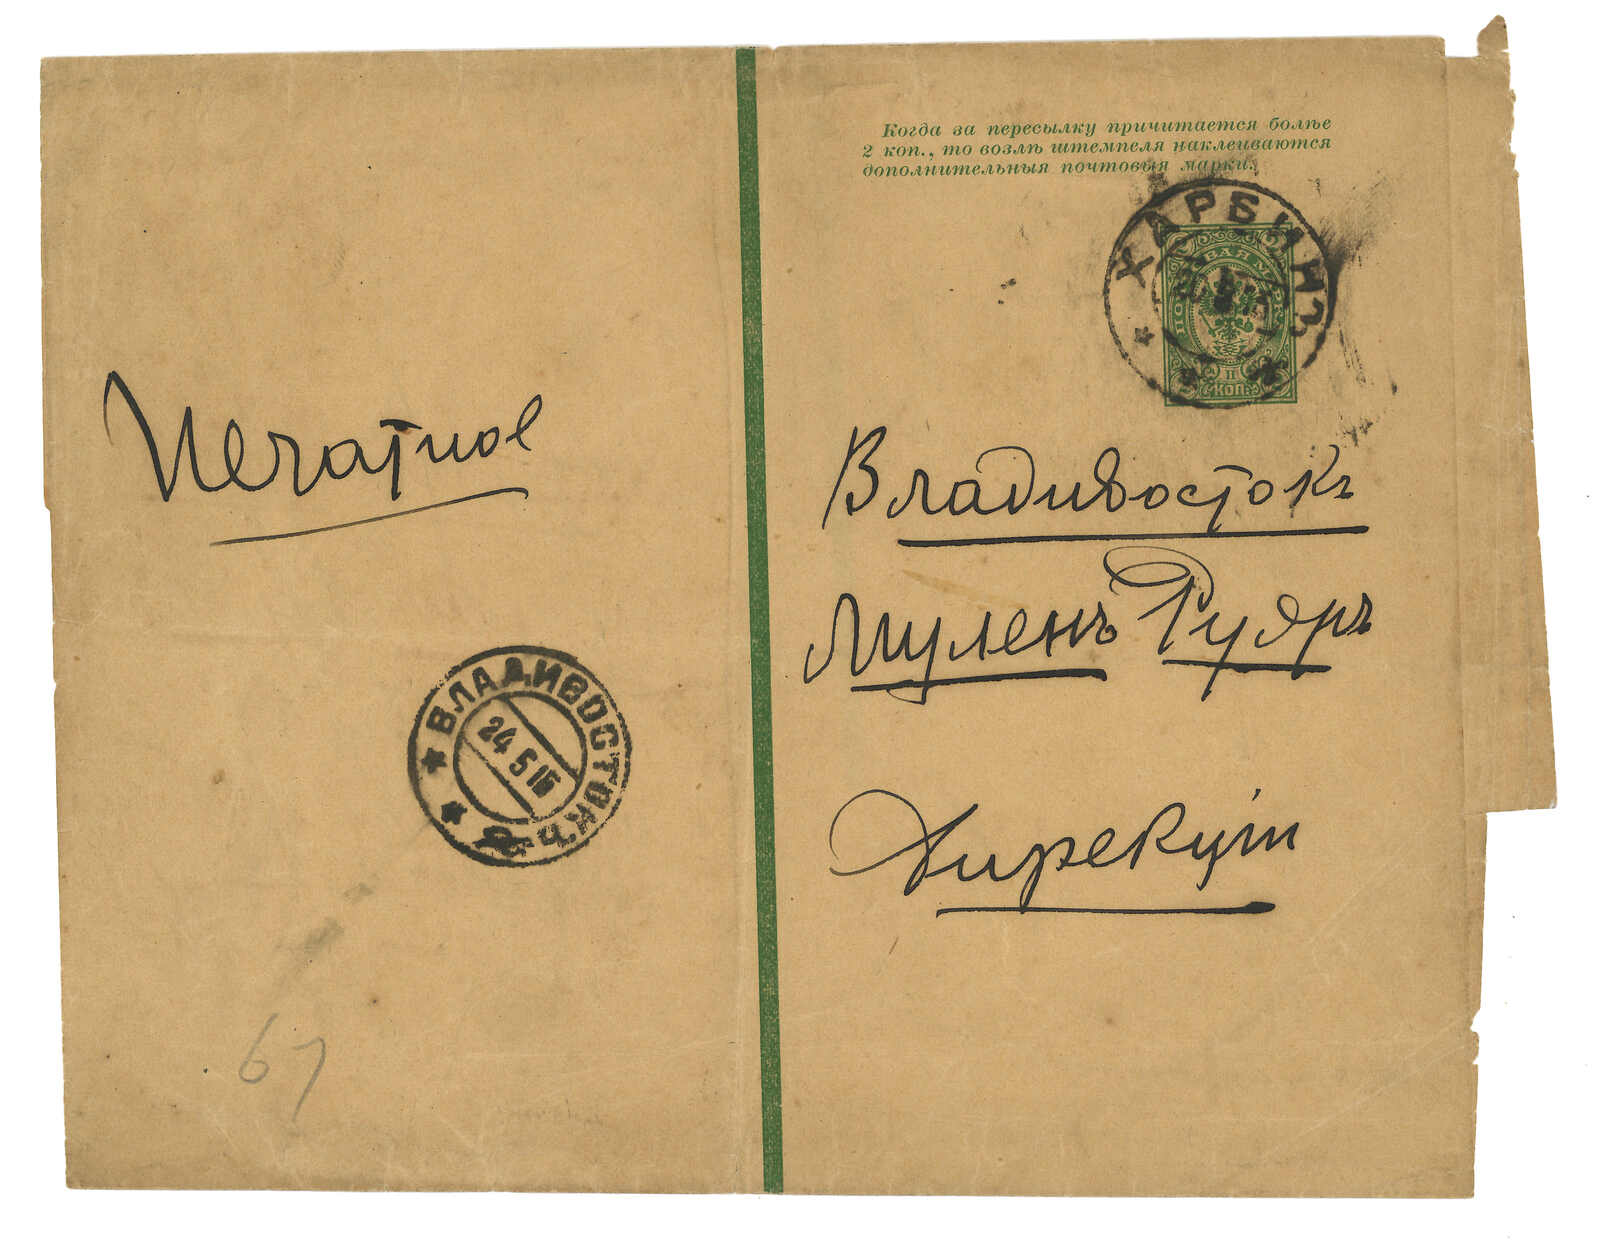 Когда за пересылку причитается болѣе
2 коп., то возлѣ штемпеля наклеиваются
дополнительныя почтовыя марки.
ХАРБИНЪ
ПОЧТОВАЯ МАРКА
КОП.
Печатное
Владивостокъ
Муленъ Руяръ
Дирекціи
ВЛАДИВОСТОКЪ
24 5 15
67